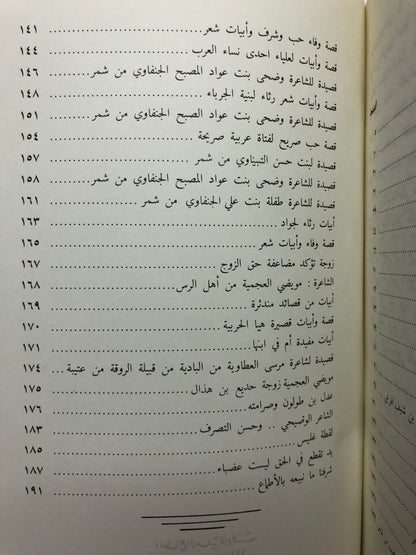 قصة وفاء حب وشرف وأبيات شعر ١٤١
قصة وأبيات لعلياء احدى نساء العرب ١٤٤
قصيدة للشاعرة وضحى بنت عواد المصبح الجنفاوي من شمر ١٤٦
قصة وأبيات شعر رثاء لبنية الجرباء ١٤٨
قصيدة للشاعرة وضحى بنت عواد الصبح الجنفاوي من شمر ١٥١
قصة حب صريح لفتاة عربية صريحة ١٥٤
قصيدة لبنت حسن التبيناوي من شمر ١٥٧
قصيدة للشاعرة وضحى بنت عواد المصبح الجنفاوي من شمر ١٥٨
قصيدة للشاعرة طفلة بنت علي الجنفاوي من شمر ١٦١
أبيات رثاء لجواد ١٦٣
قصة وفاء وأبيات شعر ١٦٥
زوجة تؤكد مضاعفة حق الزوج ١٦٧
الشاعرة : مويضي العجمية من أهل الرس ١٦٨
أبيات من قصائد مندثرة ١٦٩
قصة وأبيات قصيرة هيا الحربية ١٧٠
أبيات مفيدة أم في ابنها ١٧١
قصيدة لشاعرة مرسى العطاوية من البادية من قبيلة الروقة من عتيبة ١٧٤
مويضي العجمية زوجة حديع بن هذال ١٧٥
عدل بن طولون وصرامته ١٧٦
الشاعر الوضيحي .. وحسن التصرف ١٨٣
لقطة غليس ١٨٥
يد تقطع في الحق ليست عضباء ١٨٧
شرفنا ما نبيعه بالأطماع ١٩١